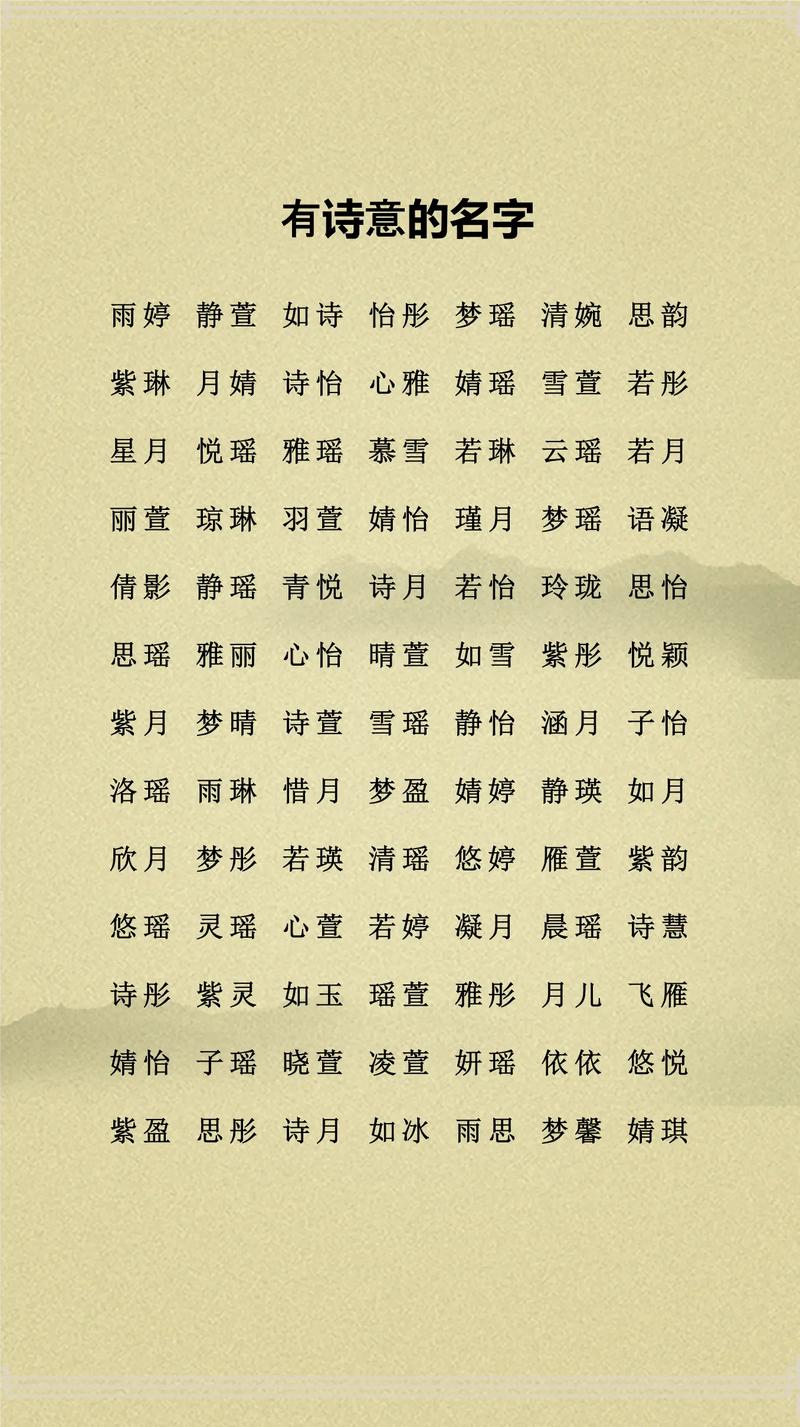 有诗意的名字
雨婷 静萱 如诗 怡彤 梦瑶 清婉 思韵
紫琳 月婧 诗怡 心雅 婧瑶 雪萱 若彤
星月 悦瑶 雅瑶 慕雪 若琳 云瑶 若月
丽萱 琼琳 羽萱 婧怡 瑾月 梦瑶 语凝
倩影 静瑶 青悦 诗月 若怡 玲珑 思怡
思瑶 雅丽 心怡 晴萱 如雪 紫彤 悦颖
紫月 梦晴 诗萱 雪瑶 静怡 涵月 子怡
洛瑶 雨琳 惜月 梦盈 婧婷 静瑛 如月
欣月 梦彤 若瑛 清瑶 悠婷 雁萱 紫韵
悠瑶 灵瑶 心萱 若婷 凝月 晨瑶 诗慧
诗彤 紫灵 如玉 瑶萱 雅彤 月儿 飞雁
婧怡 子瑶 晓萱 凌萱 妍瑶 依依 悠悦
紫盈 思彤 诗月 如冰 雨思 梦馨 婧琪